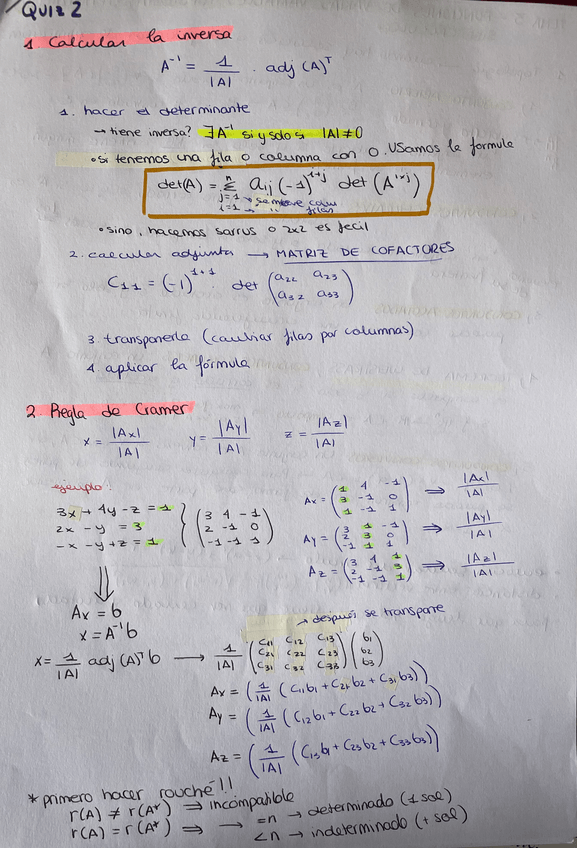 QUIZ 2
1 Calcular la inversa
A⁻¹ = 1/|A| · adj (A)ᵀ
1. hacer el determinante
→ tiene inversa? ∃A⁻¹ si y solo si |A|≠0
• si tenemos una fila o columna con 0. Usamos la formule
det(A) = Σ aij (-1)^(1+j) det (A^(1×j))
n
j=1 → se mueve colu
i=1 → " filas
• sino, hacemos sarrus o 2x2 es fecil
2. calcular adjunta → MATRIZ DE COFACTORES
C11 = (-1)^(1+1) · det (a22 a23
a32 a33)
3. transponerla (cambiar filas por columnas)
4 aplicar la fórmula
2 Regla de Cramer
x = |Ax|/|A| y = |Ay|/|A| z = |Az|/|A|
ejemplo:
3x + 4y - z = 1
2x - y = 3
-x - y + z = 1
(3 4 -1
2 -1 0
-1 -1 1)
Ax = (1 4 -1
3 -1 0
1 -1 1) ⇒ |Ax|/|A|
Ay = (3 1 -1
2 3 0
-1 1 1) ⇒ |Ay|/|A|
Az = (3 4 1
2 -1 3
-1 -1 1) ⇒ |Az|/|A|
Ax = b
x = A⁻¹b
→ después se transpone
x = 1/|A| adj (A)ᵀ b → 1/|A| (C11 C12 C13
C21 C22 C23
C31 C32 C33) (b1
b2
b3)
Ax = (1/|A| (C11b1 + C21b2 + C31b3))
Ay = (1/|A| (C12b1 + C22b2 + C32b3))
Az = (1/|A| (C13b1 + C23b2 + C33b3))
* primero hacer rouché!!
r(A) ≠ r(A*) ⇒ incompatible
r(A) = r(A*) ⇒ → =n → determinado (1 sol)
<n → indeterminado (+ sol)